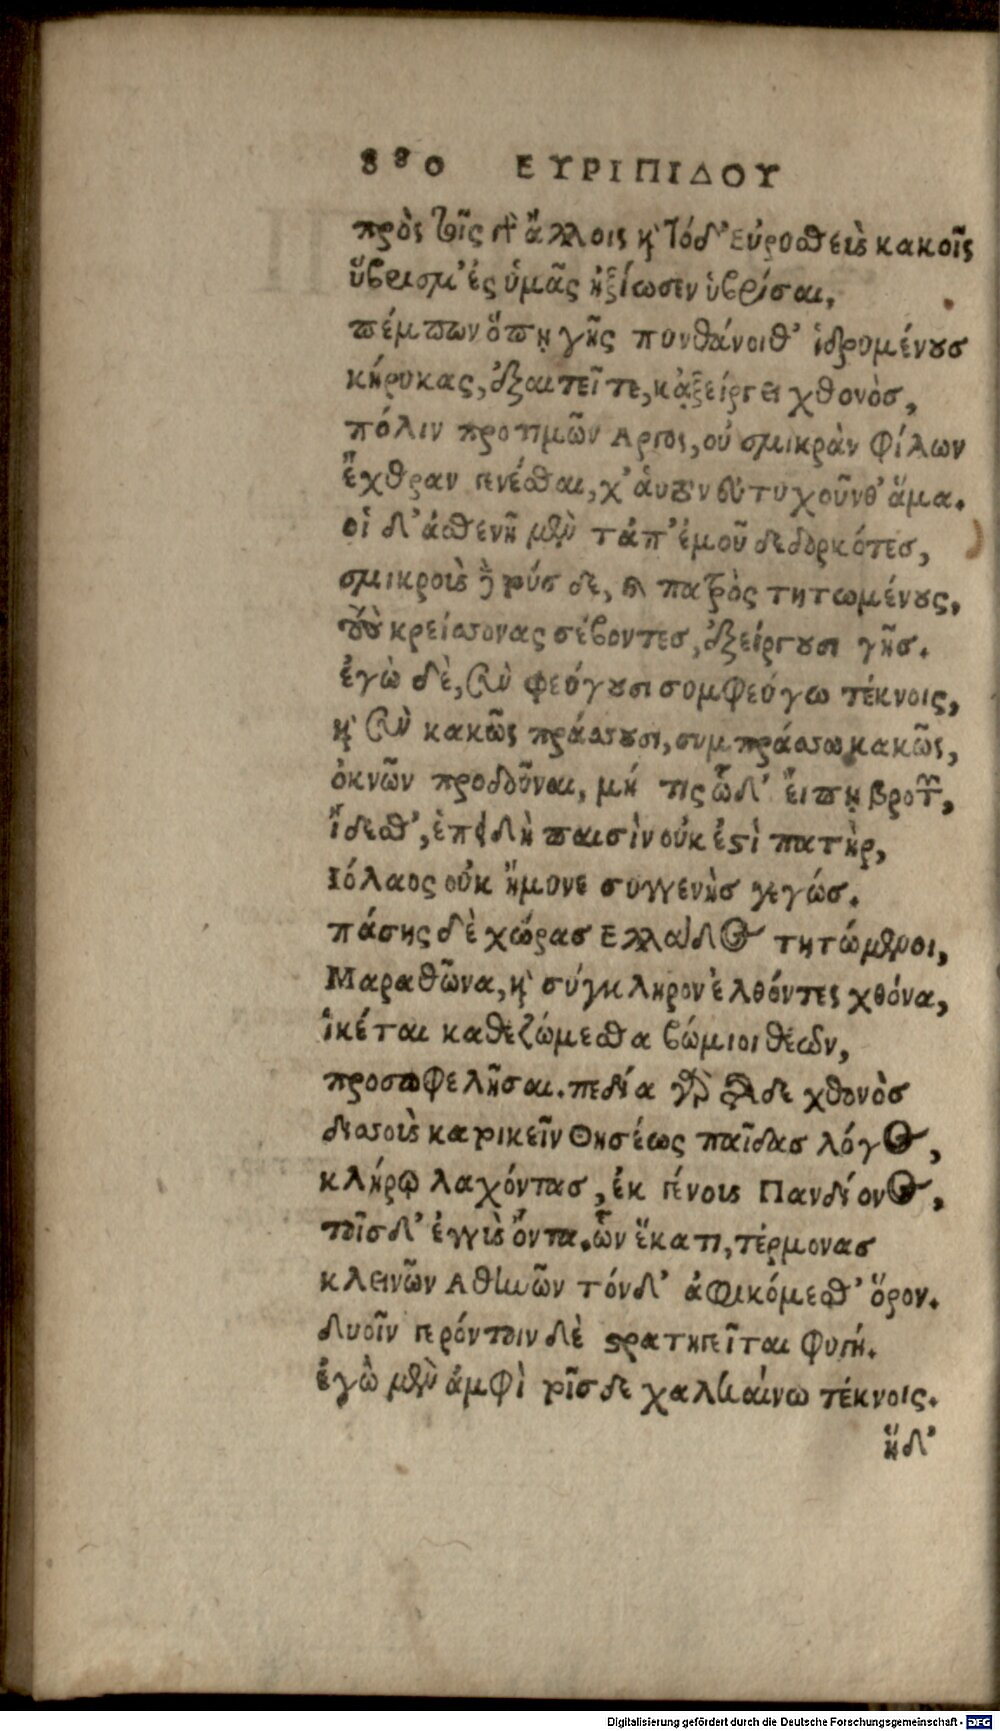 880 ΕΥΡΙΠΙΔΟΥ
πρὸς τοῖς γὰρ ἄλλοις καὶ τόδ' εὐρυσθεὺς κακοῖς
ὕβρισμ' ἐς ὑμᾶς ἠξίωσεν ὑβρίσαι,
πέμπων ὅπῃ γῆς πυνθάνοιθ' ἱδρυμένους
κήρυκας, ἐξαιτεῖ τε, κἀξείργει χθονὸς,
πόλιν προτιμῶν Αργος, οὐ σμικρὰν φίλων
ἔχθραν γενέσθαι, χ' αὑτὸν εὐτυχοῦνθ' ἅμα.
οἱ δ' ἀσθενῆ μὲν τἀπ' ἐμοῦ δεδορκότες,
σμικροὺς δὲ τούσδε, καὶ πατρὸς τητωμένους,
τοὺς κρείσσονας σέβοντες, ἐξείργουσι γῆς.
ἐγὼ δὲ, σὺν φεύγουσι συμφεύγω τέκνοις,
καὶ σὺν κακῶς πράσσουσι, συμπράσσω κακῶς,
ὀκνῶν προδοῦναι, μή τις ὧδ' εἴπῃ βροτῶν,
ἴδεσθ', ἐπειδὴ παισὶν οὐκ ἐστὶ πατὴρ,
Ιόλαος οὐκ ἤμυνε συγγενὴς γεγώς.
πάσης δὲ χώρας Ελλάδος τητώμενοι,
Μαραθῶνα, καὶ σύγκληρον ἐλθόντες χθόνα,
ἱκέται καθεζόμεσθα βώμιοι θεῶν,
προσωφελῆσαι. πεδία γὰρ τῆσδε χθονὸς
δισσοὺς κατοικεῖν Θησέως παῖδας λόγος,
κλήρῳ λαχόντας, ἐκ γένους Πανδίονος,
τοῖσδ' ἐγγὺς ὄντας. ὧν ἕκατι, τέρμονας
κλεινῶν Αθηνῶν τόνδ' ἀφικόμεσθ' ὅρον.
δυοῖν γερόντοιν δὲ στρατηγεῖται φυγή.
ἐγὼ μὲν ἀμφὶ τοῖσδε χαλκαίνω τέκνοις.
ἥδ'
Digitalisierung gefördert durch die Deutsche Forschungsgemeinschaft - DFG